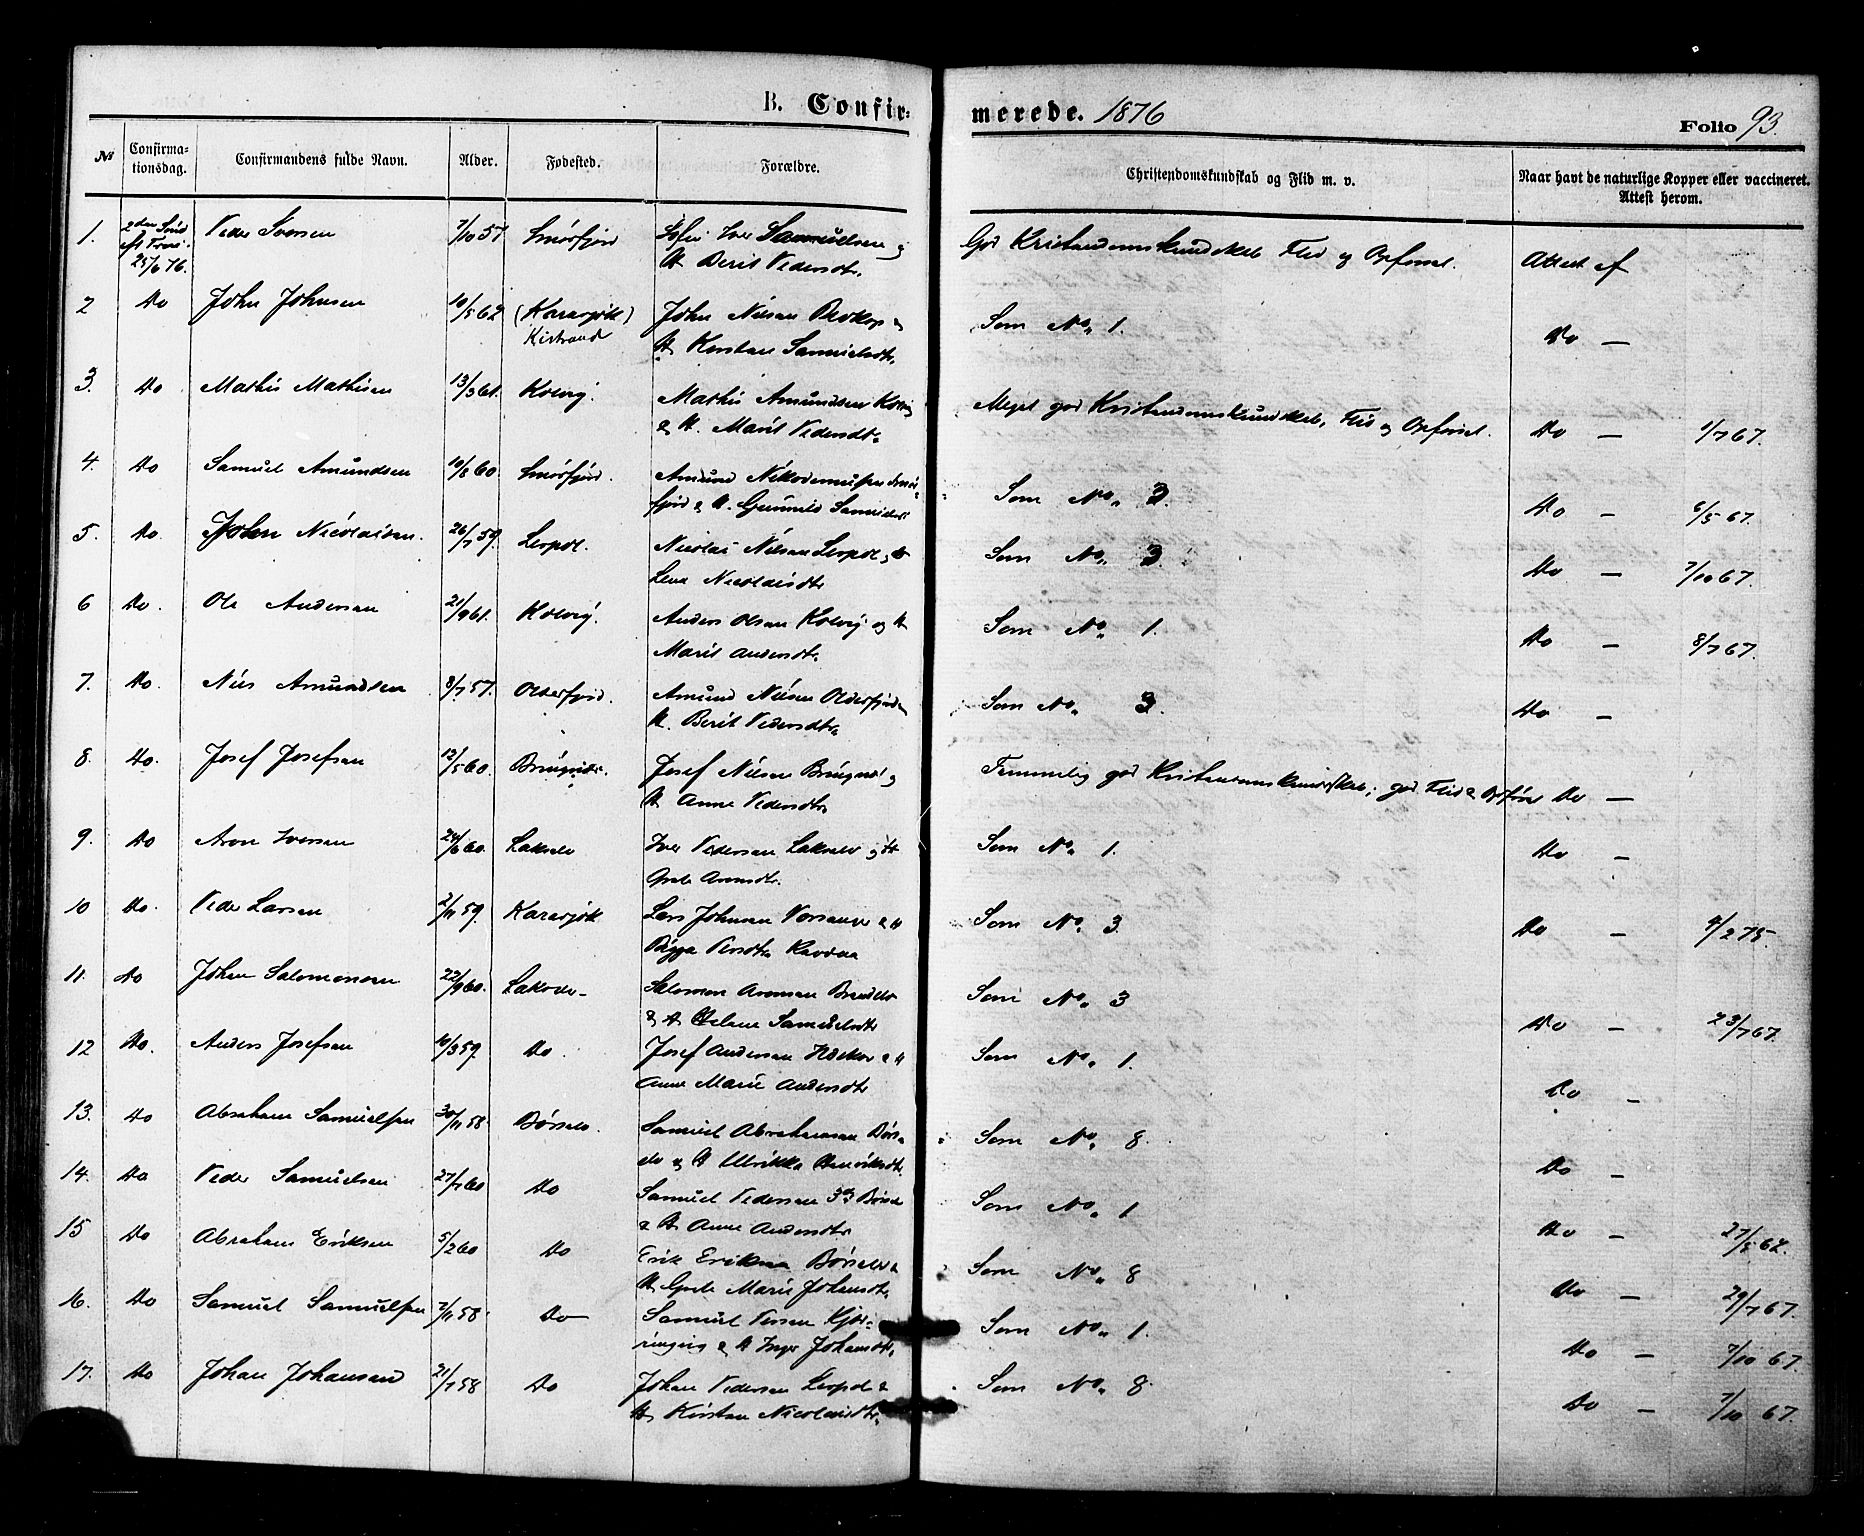 B. Confir-
merede. 1876
Folio 93.
No
Confirma-
tionsdag.
Confirmandens fulde Navn.
Alder.
Fødested.
Forældre.
Christendomskundskab og Flid m. v.
Naar havt de naturlige Kopper eller vaccineret.
Attest herom.
1. 2den Sønd Peder Iversen 7/10 57 Smørfjord Iver Samuelsen og God Kristendomskundskab Flid og Opførsel. Attest af
eft Trini.
25/6 76. H Berit Pedersdtr.
2 Do John Johnsen 10/5 62 (Karasjok) John Nilsen & Som No. 1. Do —
Kistrand H. Kirsten Samuelsdtr.
3. Do Mathis Mathisen 13/3 61. Kolvig. Mathis Amundsen Kolvig Meget god Kristendomskundskab, Flid og Opførsel. Do — 1/7 67.
& H. Marit Pedersdtr.
4. Do Samuel Amundsen 10/8 60. Smørfjord. Amund Nikodemussen Smør- Som No. 3. Do — 6/5 67.
fjord & H. Gunnild Samuelsdr
5. Do. John Nicolaisen. 26/7 59. Lerpol. Nicolai Nilsen Lerpol & Som No. 3. Do — 7/10 67.
Lena Nicolaisdtr
6 Do. Ole Andersen 21/9 61. Kolvig. Anders Olsen Kolvig og H Som No. 1. Do — 8/7 67.
Marit Andersdtr.
7. Do. Nils Amundsen 8/7 57. Olderfjord. Amund Nilsen Olderfjord & Som No. 3. Do —
H. Berit Pedersdtr.
8. Do. Josef Josefsen 12/5 60. Bringnæs. Josef Nilsen Bringnæs og Temmelig god Kristendomskundskab; god Flid & Opførsel Do —
H. Anne Pedersdtr
9. Do Aron Iversen 24/6 60. Lakselv Iver Pedersen Lakselv og H Som No. 1. Do —
Grete Aronsdtr.
10 Do. Peder Larsen 2/11 59. Karasjok Lars Johnsen Porsanger & H Som No. 3. Do — 4/2 75.
Bigga Persdtr.
11. Do Johan Salomonsen 22/9 60. Lakselv- Salomon Aronsen Som No. 3 Do — 23/7 67.
& H. Helene Samuelsdtr
12 Do. Anders Josefsen 10/3 59. Do. Josef Andersen & H Som No. 1. Do —
Anne Marie Andersdtr
13. Do Abraham Samuelsen 30/11 58. Børselv. Samuel Abrahamsen Børs- Som No. 8. Do —
elv & H Ulrikka Henriksdtr.
14. Do Peder Samuelsen 27/7 60 Do Samuel Pedersen Børselv Som No. 1 Do — 27/5 62.
& H. Anne Andersdtr
15 Do Abraham Eriksen 5/2 60 Do Erik Eriksen Børselv & Som No. 8 Do — 29/7 67.
H. Grete Marie Johansdtr.
16. Do Samuel Samuelsen 2/11 58. Do Samuel Persen Kjær- Som No. 1. Do — 7/10 67.
ringvig & H Inger Johansdtr.
17. Do Johan Johansen 21/7 58 Do Johan Pedersen Lerpol & Som No. 8. Do — 7/10 67.
H. Kirsten Nicolaisdtr.